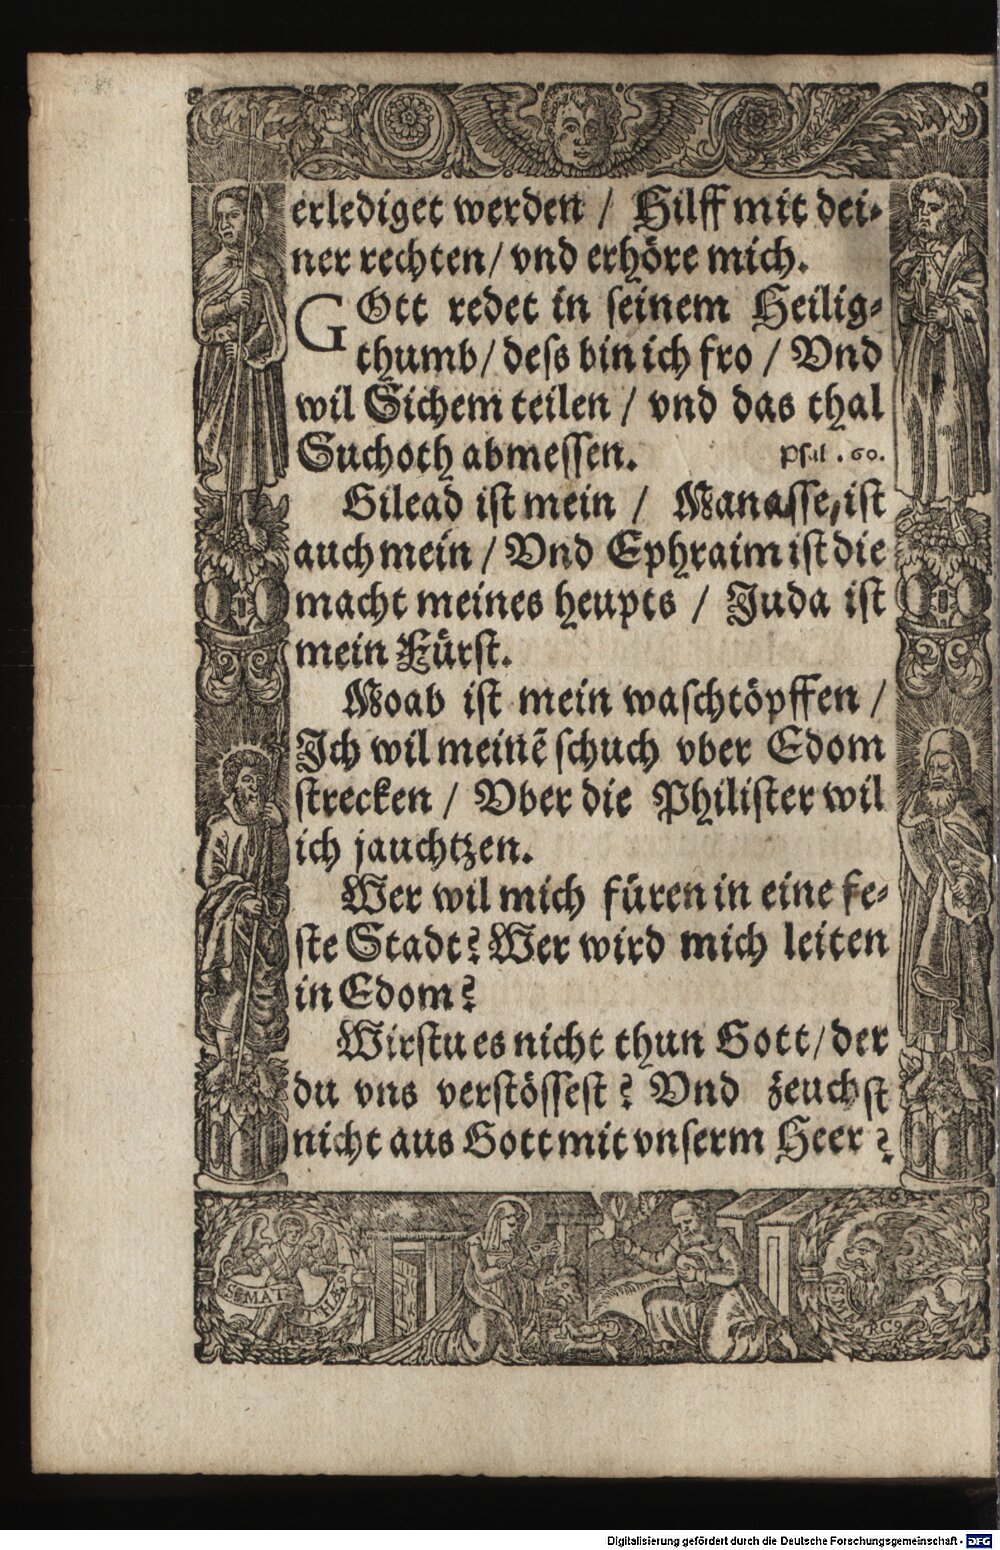 erlediget werden / Hilff mit dei-
ner rechten / vnd erhöre mich.
GOtt redet in seinem Heilig-
thumb / dess bin ich fro / Vnd
wil Sichem teilen / vnd das thal
Suchoth abmessen. Psal. 60.
Gilead ist mein / Manasse, ist
auch mein / Vnd Ephraim ist die
macht meines heupts / Juda ist
mein Fürst.
Moab ist mein waschtöpffen /
Ich wil meinẽ schuch vber Edom
strecken / Vber die Philister wil
ich jauchtzen.
Wer wil mich füren in eine fe-
ste Stadt? Wer wird mich leiten
in Edom?
Wirstu es nicht thun Gott / der
du vns verstössest? Vnd zeuchst
nicht aus Gott mit vnserm Heer?
S. MAT HE9
S. MA RC9
Digitalisierung gefördert durch die Deutsche Forschungsgemeinschaft - DFG